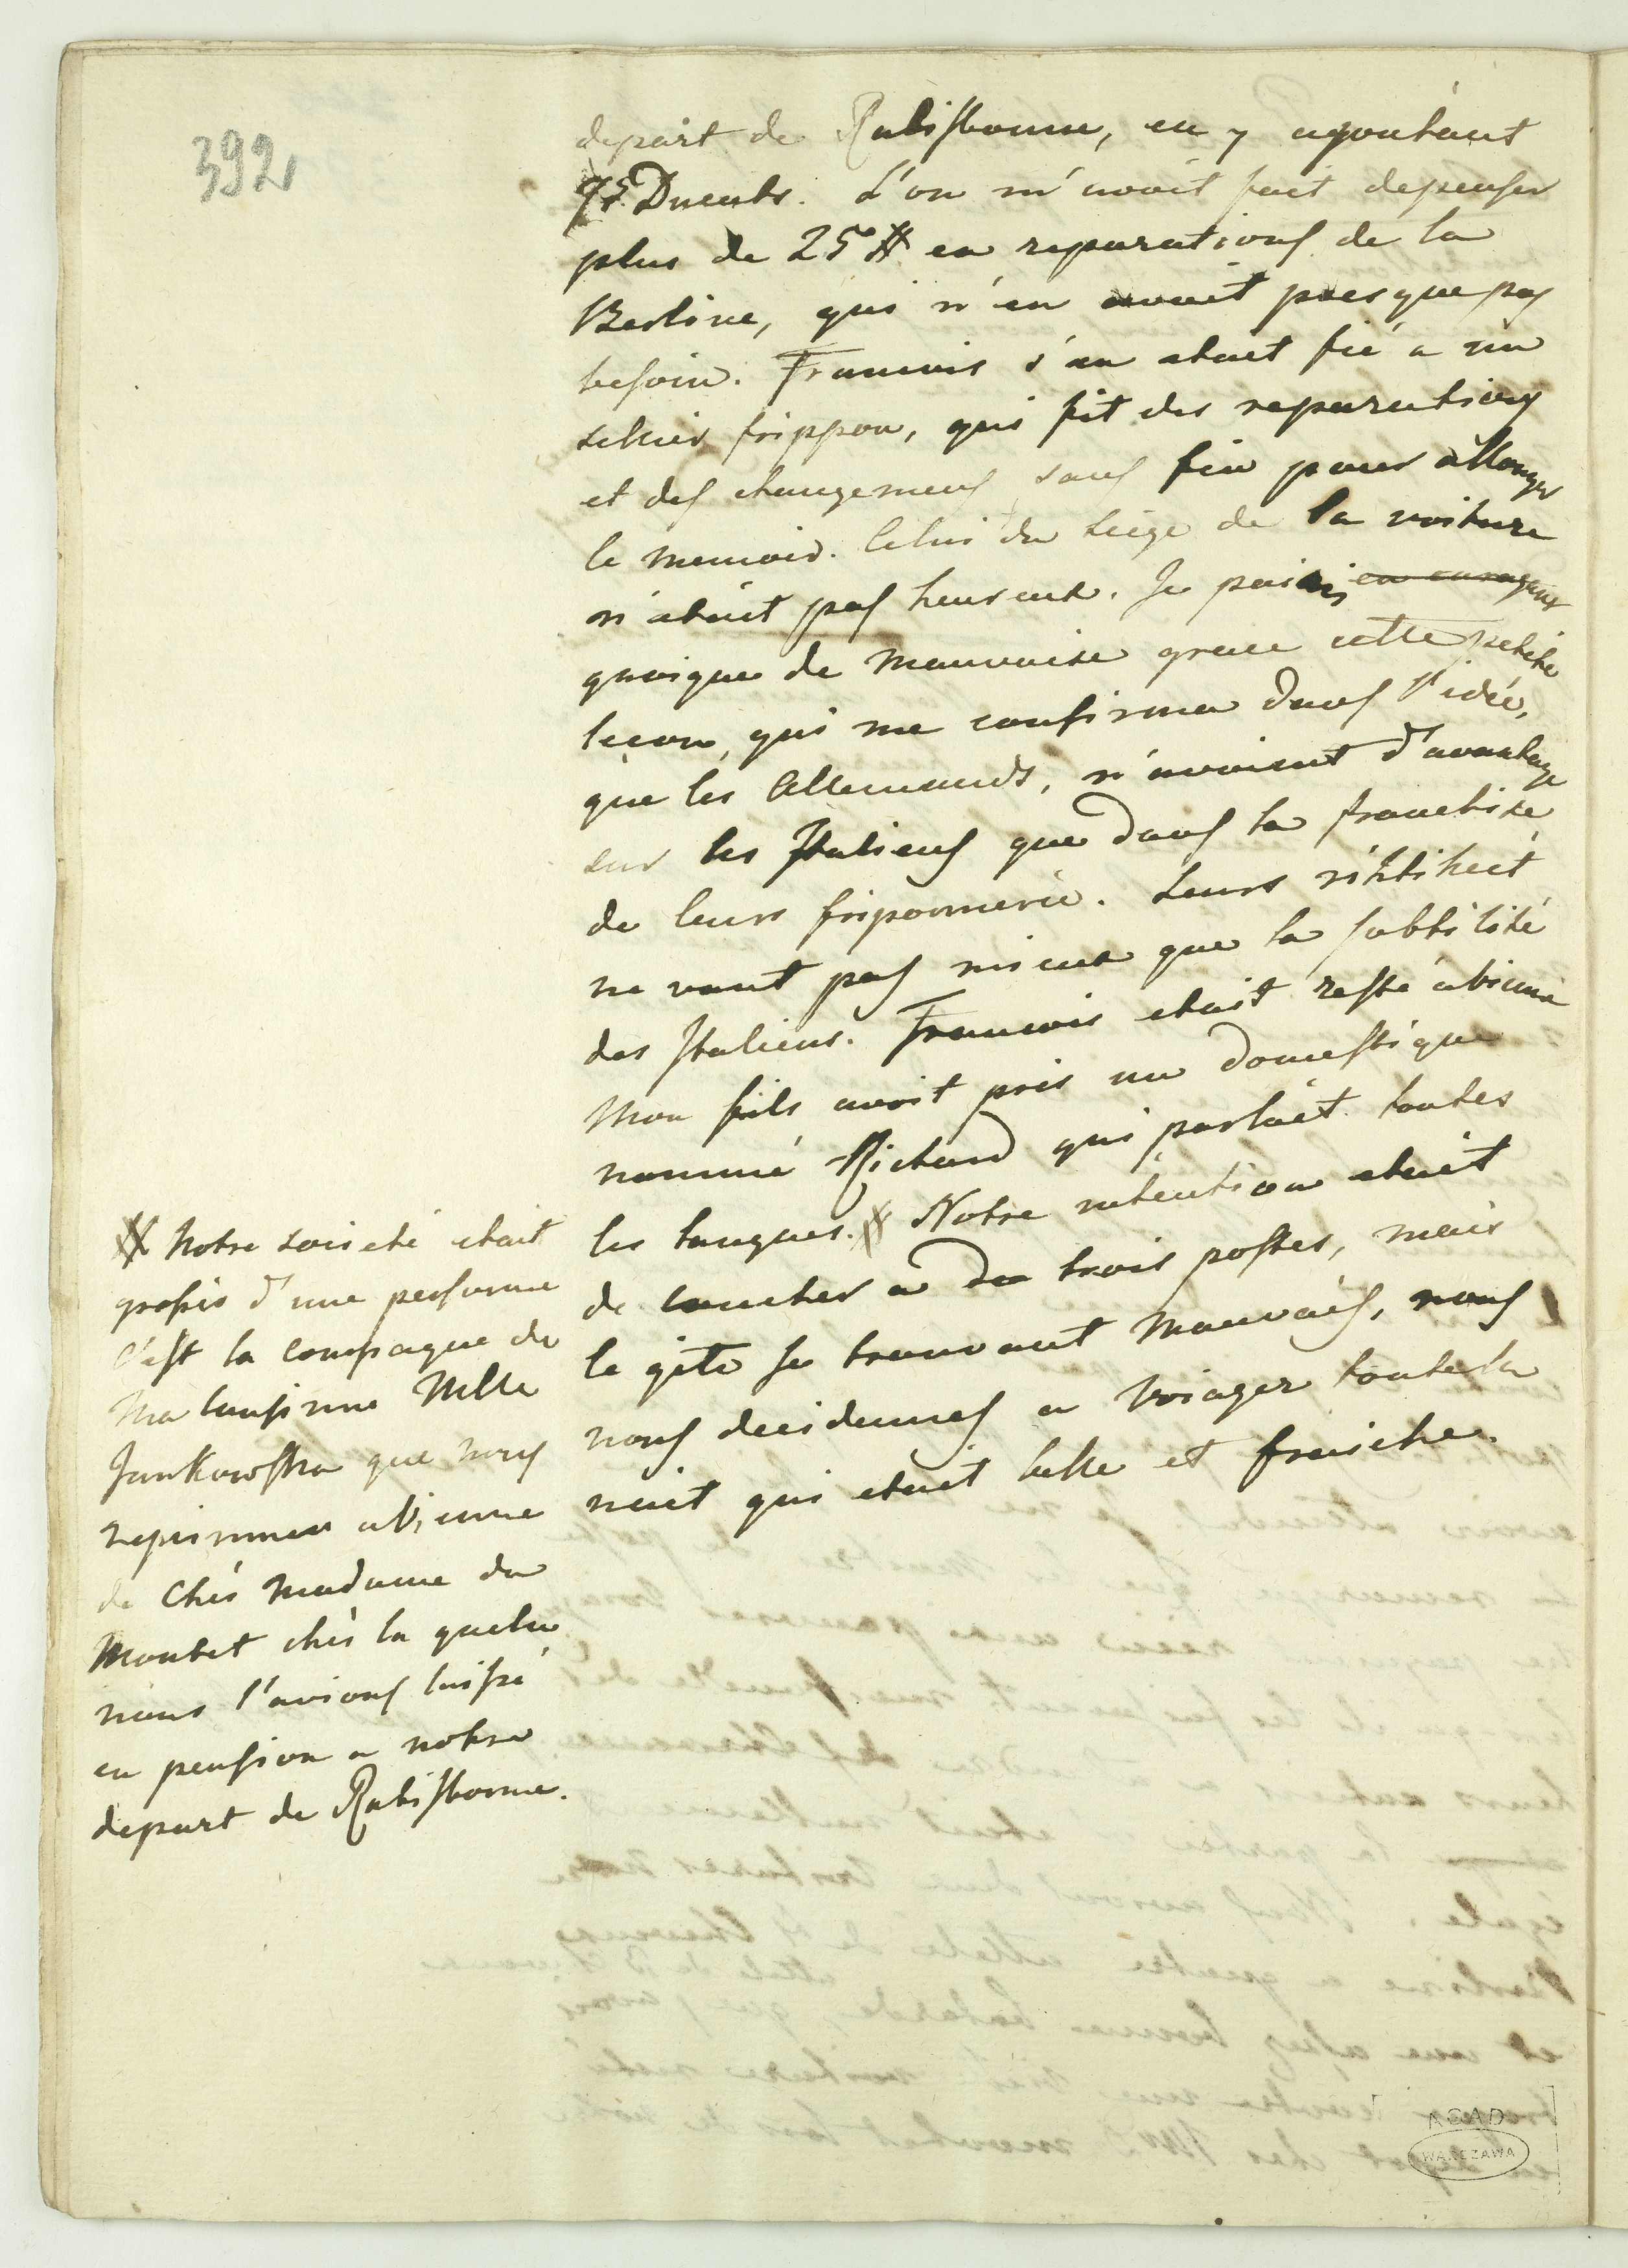 392
depart de Ratisbonne, en y ajoutant
75 Ducats. L'on m'avoit fait depenser
plus de 25 # en reparations de la
Berline, qui n'en avait presque pas
besoin. Francois s'en etait fié a un
selier frippon, qui fit des reparations
et des changemens sans fin pour allonger
le memoire. Celui du siege de la voiture
n'etait pas heureux. Je paiai
quoique de mauvaise grace cette petite
lecon, qui me confirma dans l'idée,
que les Allemands, n'avoient d'avantage
sur les Italiens que dans la franchise
de leurs friponnerie. Leurs
ne vaut pas mieux que la subtilité
des Italiens. Francois etait resté a Vienne
Mon fils avoit pris un domestique
nommé Richard qui parlait toutes
les langues. # Notre intention etait
de coucher a de trois postes, mais
le gite se trouvant mauvais, nous
nous decidames a voiager toute la
nuit qui etait belle et fraiche.
# Notre societé etait
grossie d'une personne
c'est la compagne de
Ma cousinne Mlle
Jankowska que nous
reprimmes a Vienne
de chés Madame du
Montet chés la quelle
nous l'avions laissé
en pension a notre
depart de Ratisbonne.
AGAD
WARSZAWA